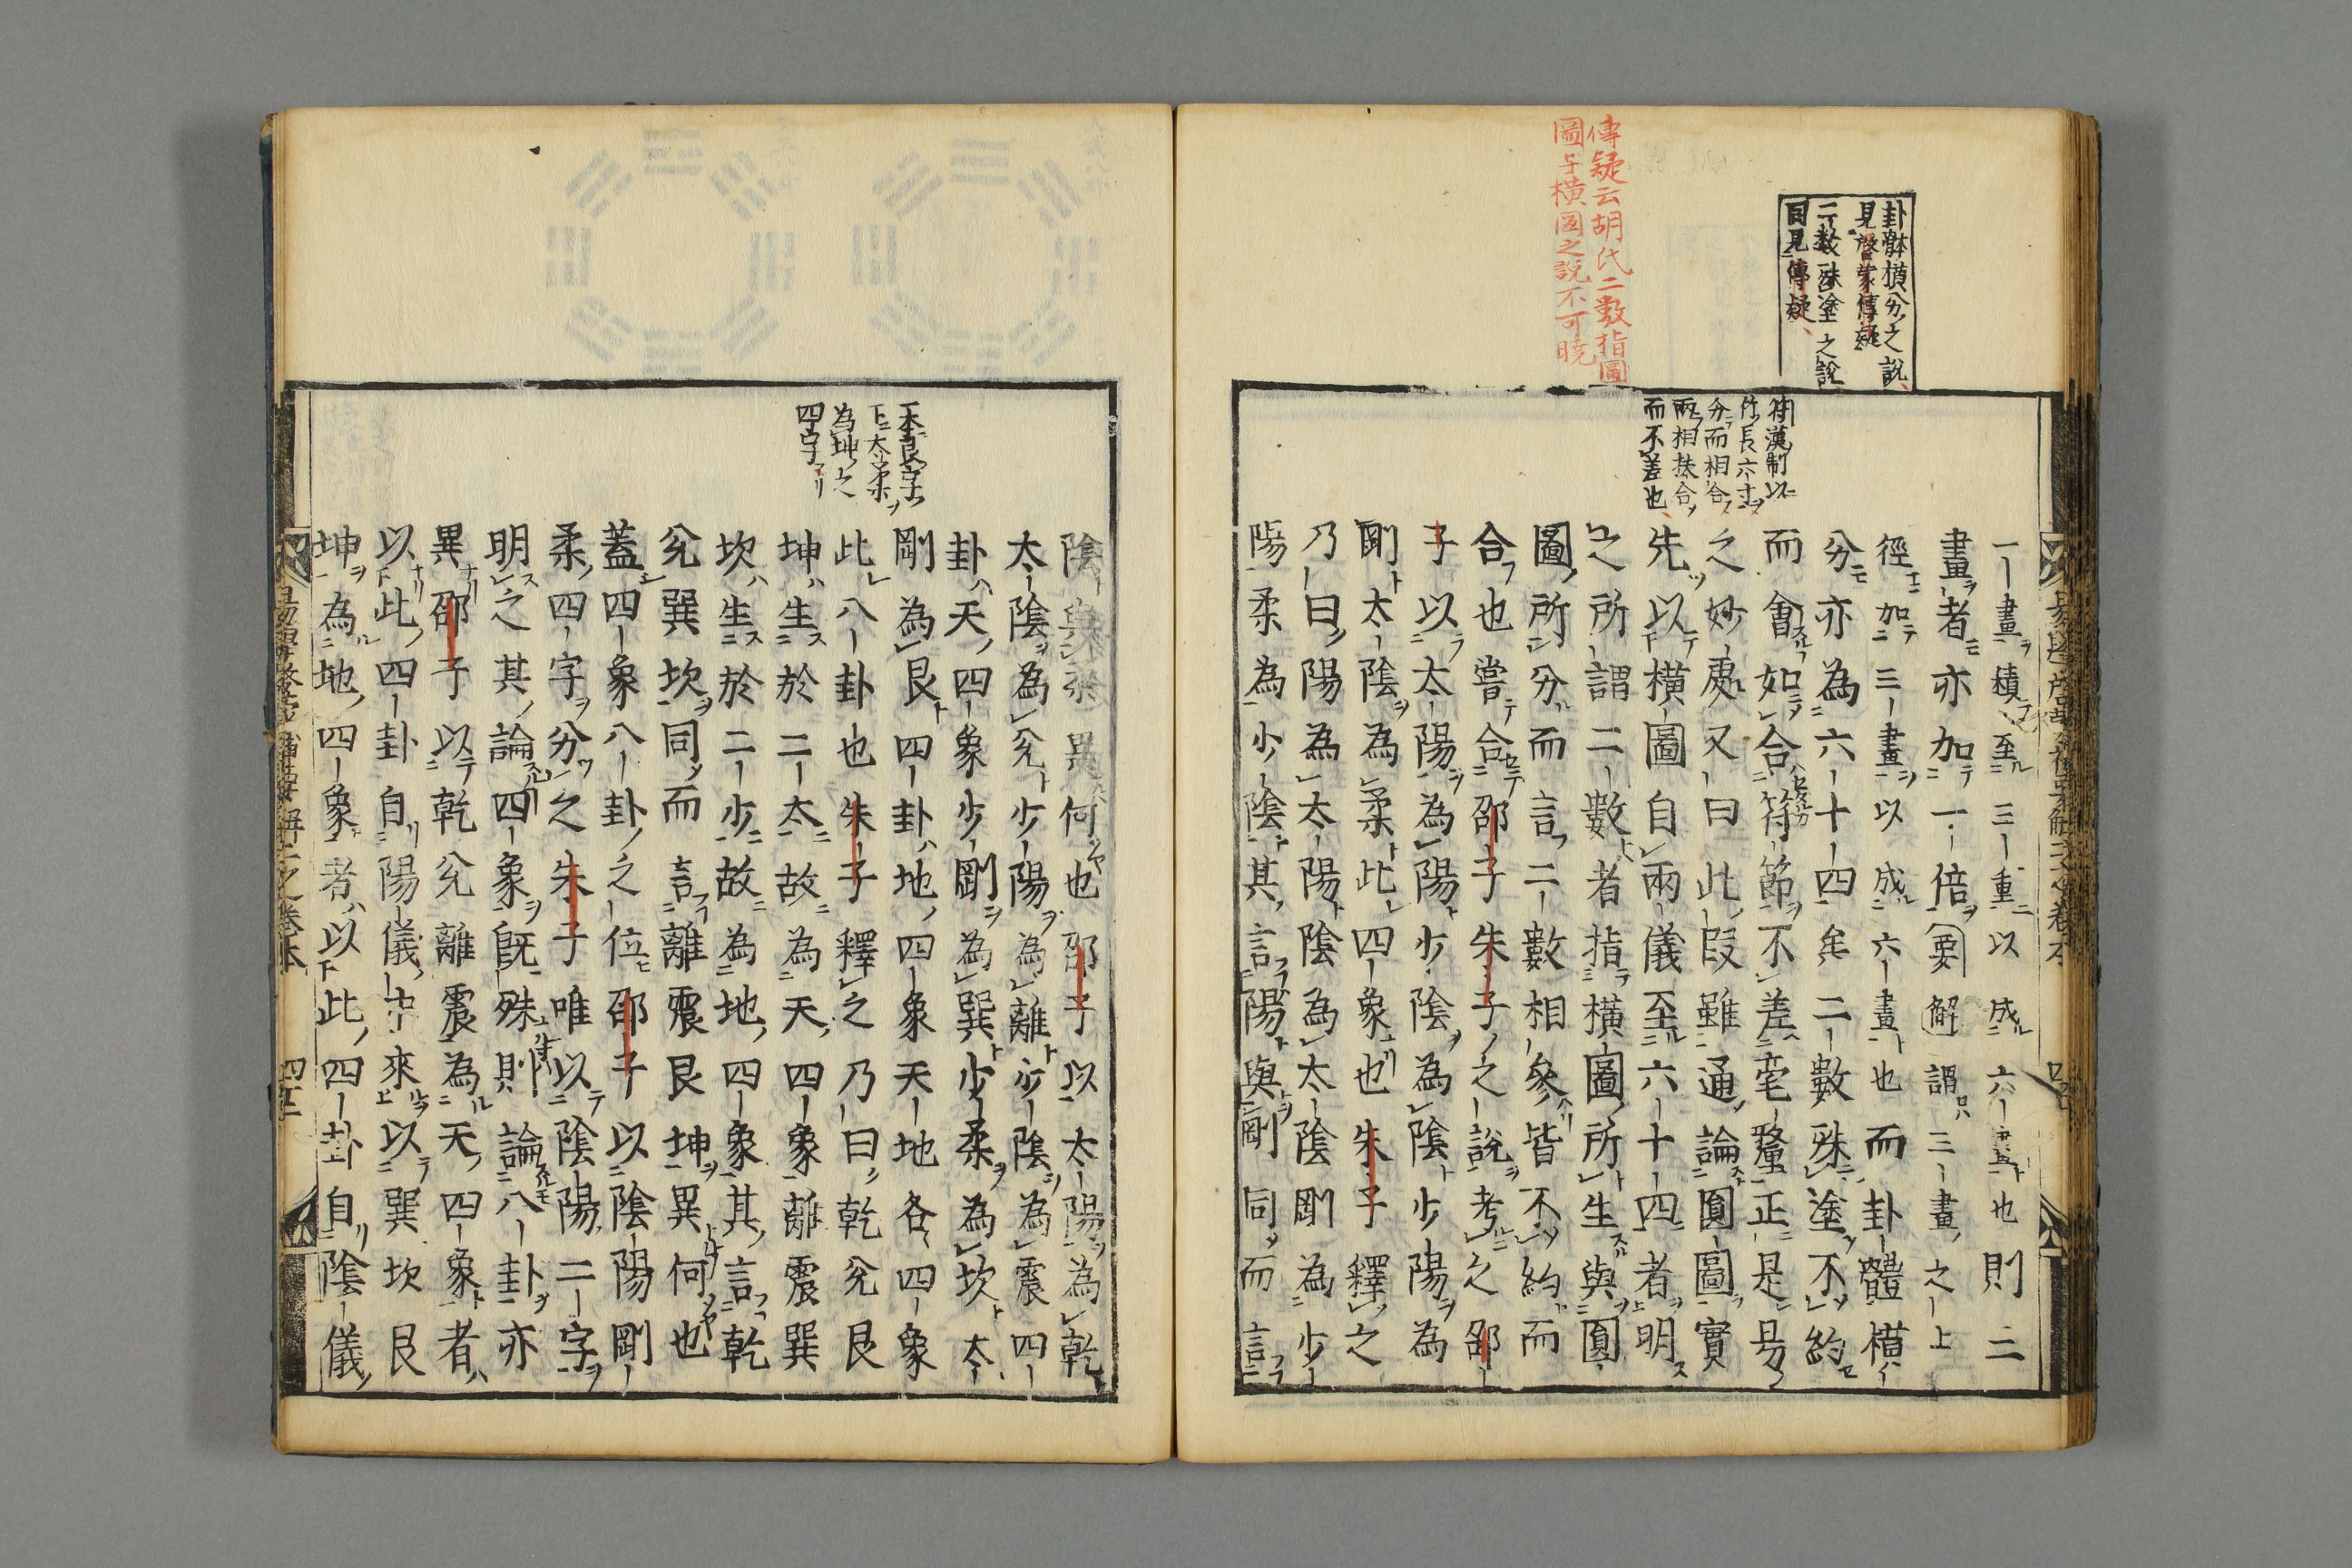 傳疑云胡氏二數指圖
圖与橫圖之説不可曉
卦骵橫分之説
見啓蒙傳疑
二數殊塗之説
目見傳疑
符漢制以
竹長六寸
分而相合
兩相扶合
而不差也
一畫積至三重以成六畫也則二
畫者亦加一倍要解謂三畫之上
徑加三畫以成六畫也而卦體橫
分亦為六十四矣二數殊塗不約
而會如合符節不差毫釐正是易
之妙處又曰此段雖通論圓圖實
先以橫圖自兩儀至六十四者明
之所謂二數者指橫圖所生與圓
圖所分而言二數相參皆不約而
合也嘗合邵子朱子之說考之邵
子以太陽為陽少陰為陰少陽為
剛太陰為柔此四象也朱子釋之
乃曰陽為太陽陰為太陰剛為少
陽柔為少陰其言陽與剛同而言
陰與柔異何也邵子以太陽為乾
太陰為兊少陽為離少陰為震四
卦天四象少剛為巽少柔為坎太
剛為艮四卦地四象天地各四象
此八卦也朱子釋之乃曰乾兊艮
坤生於二太故為天四象離震巽
坎生於二少故為地四象其言乾
兊巽坎同而言離震艮坤異何也
蓋四象八卦之位邵子以陰陽剛
柔四字分之朱子唯以陰陽二字
明之其論四象既殊則論八卦亦
異邵子以乾兊離震為天四象者
以此四卦自陽儀中來以巽坎艮
坤為地四象者以此四卦自陰儀
一本艮字
下太柔
為坤之
四字アリ